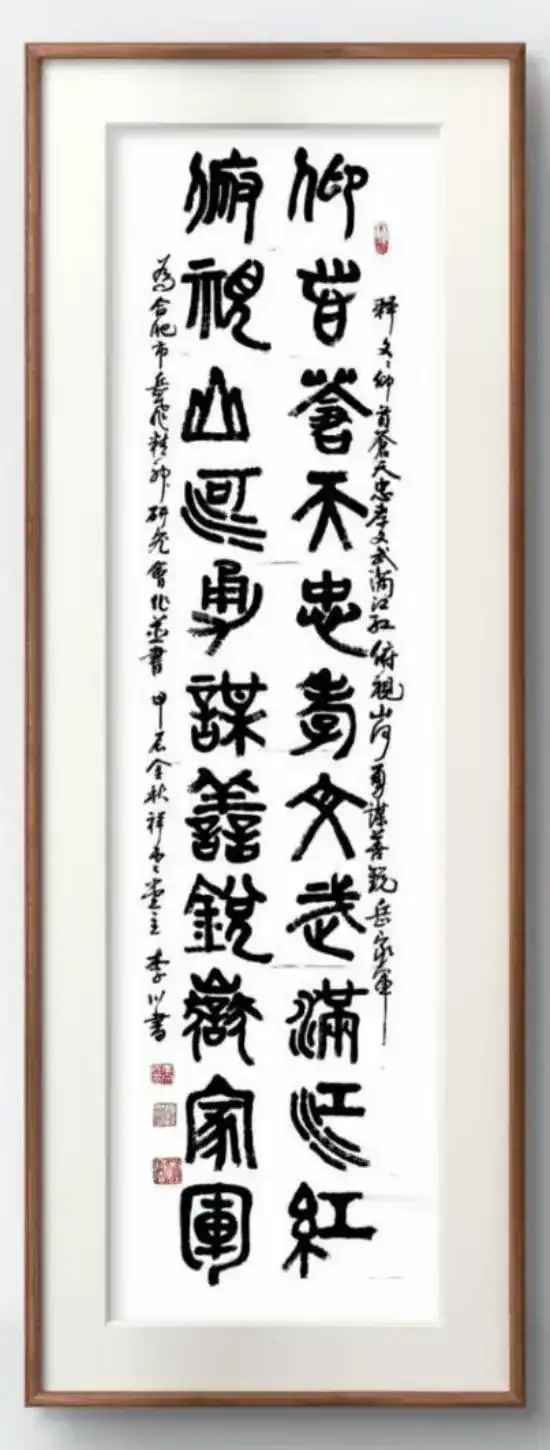 释文：仰首蒼天忠孝文武滿江紅 俯視山河勇謀善銳岳家軍
仰首蒼天忠孝文武滿江紅
俯視山河勇謀善銳嶽家軍
為合肥市岳飛精神研究會作並書 甲辰金秋祥堂主李川書